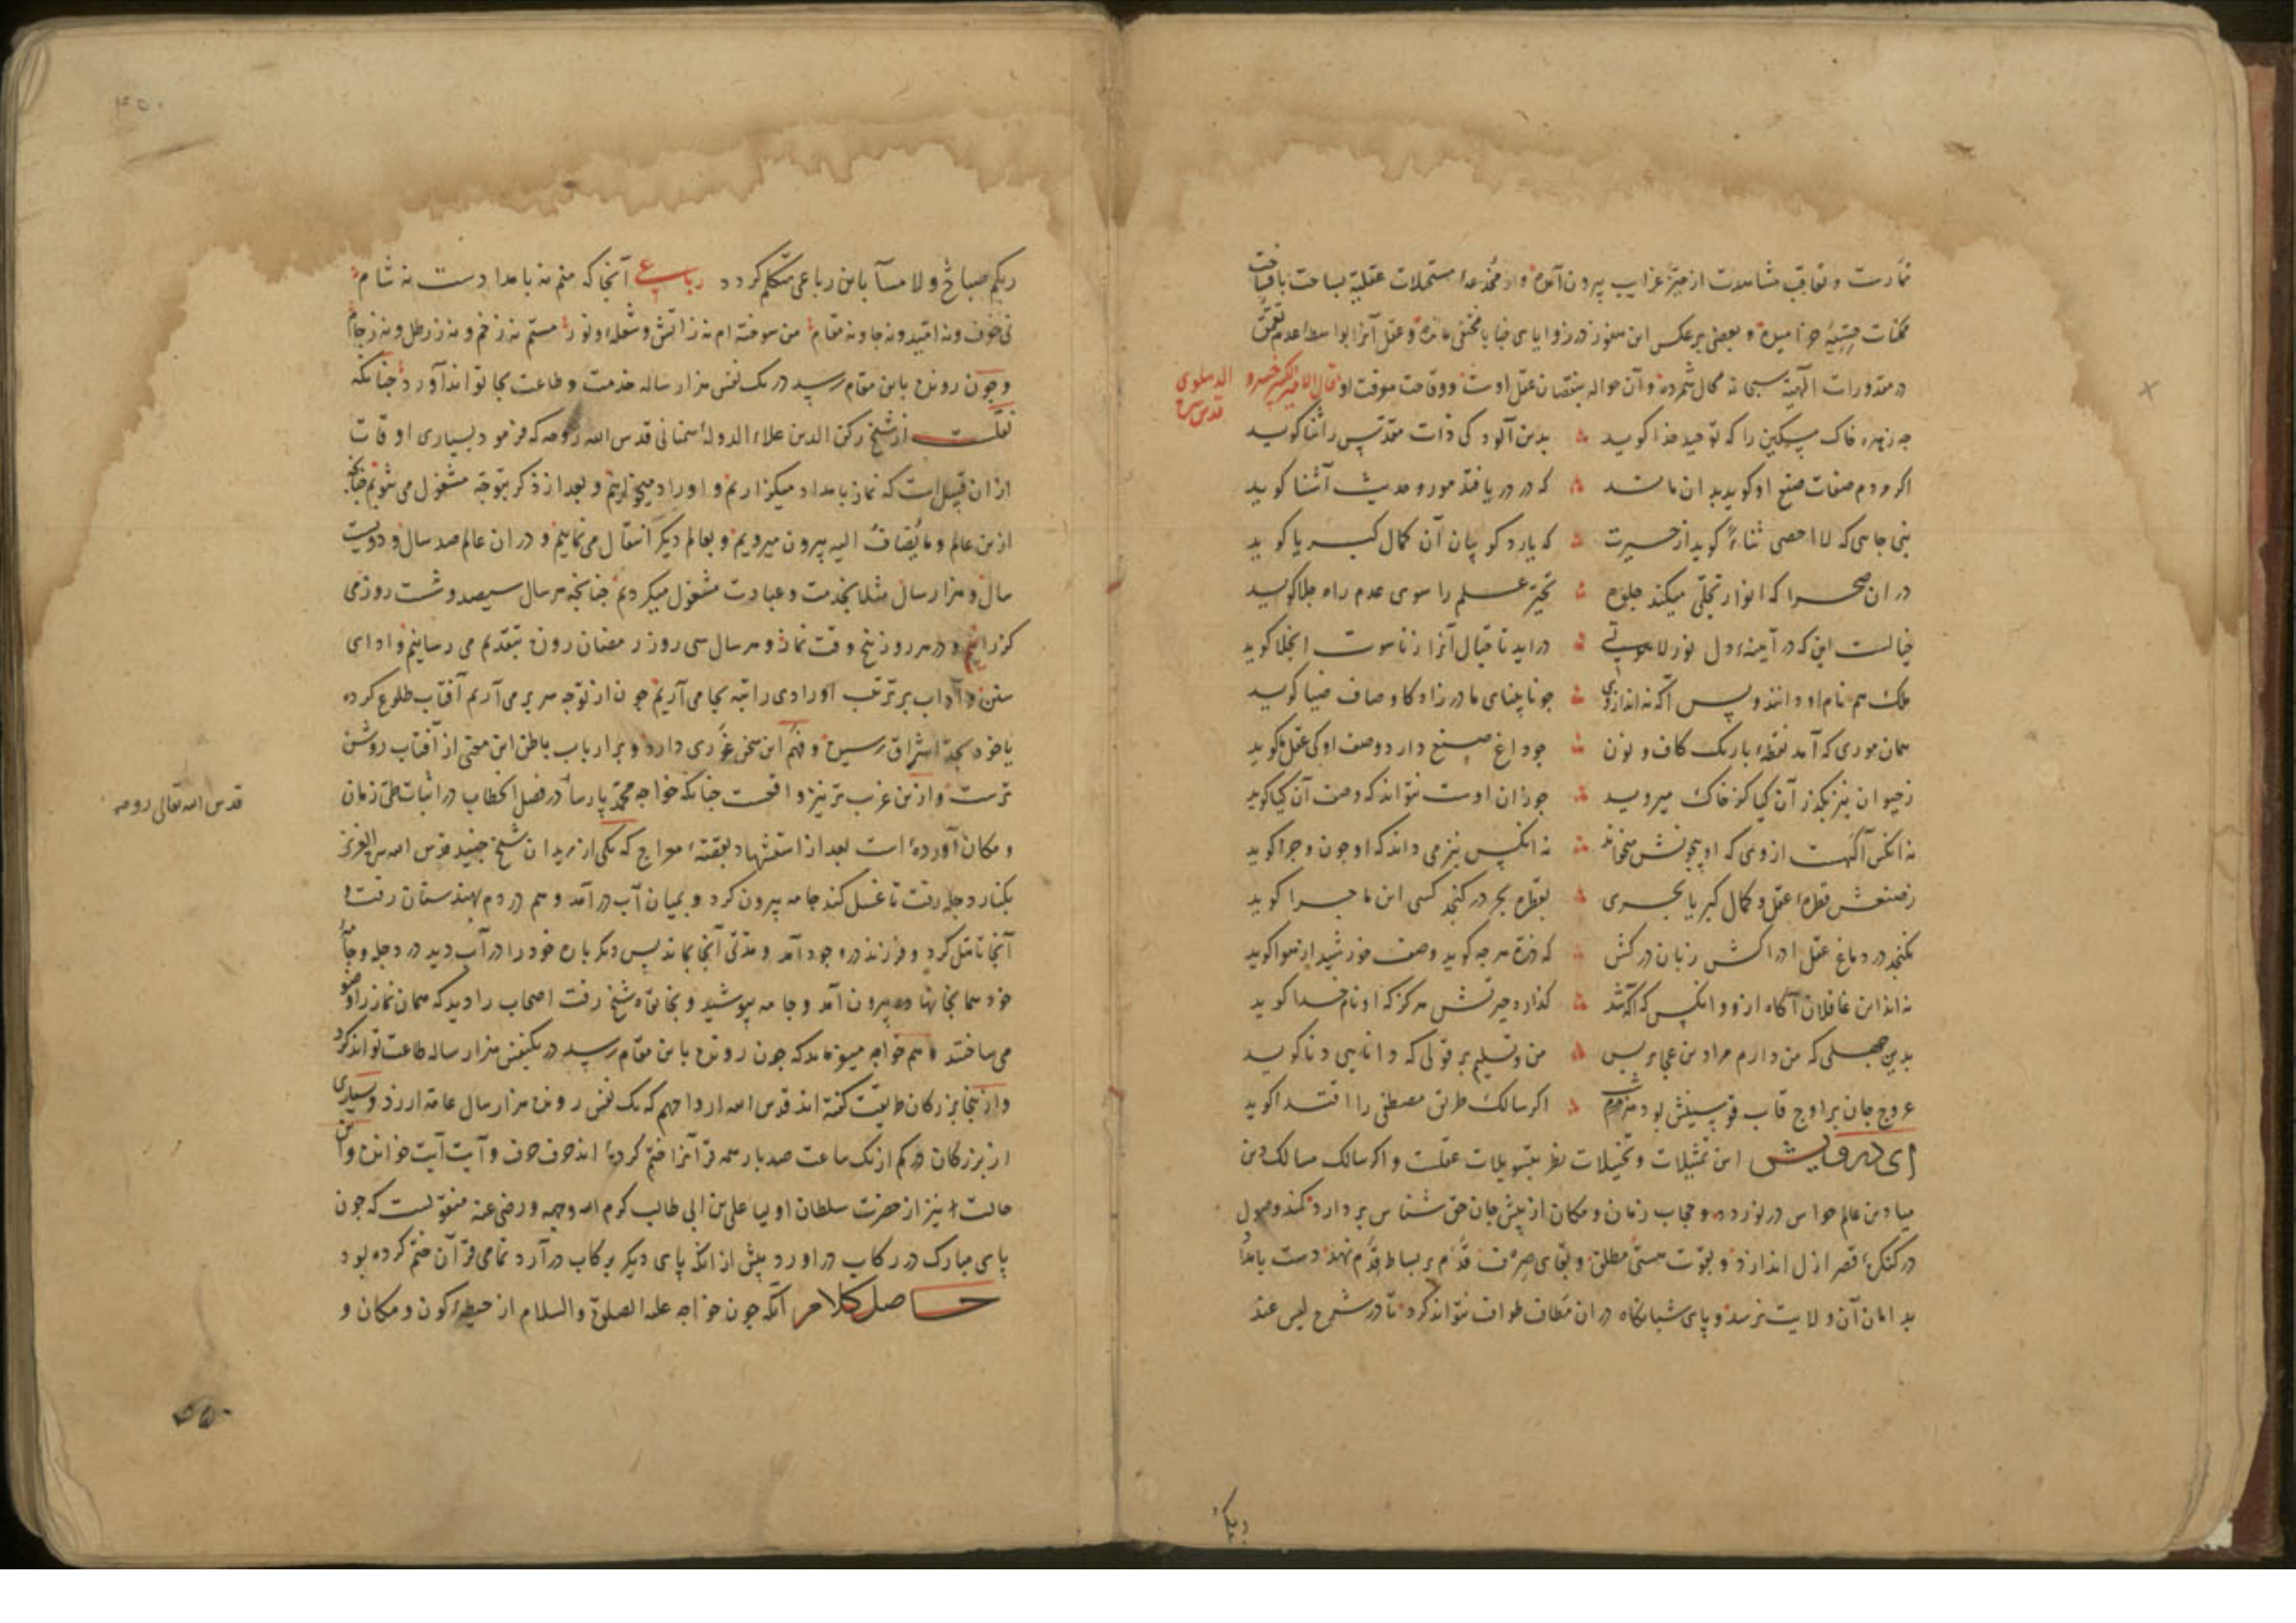 ممارست و تعاقب مشاهدت از حیّز غرایب بیرون آمده و از مخدعهٔ مستحیلات عقلیه بساحت باقیات
ممکنات حسّیّه خرامیده و بعضی برعکس این هنوز در زوایای خبایا مختفی مانده و عقل آنرا بواسطهٔ عدم تعمّق
در مقدورات الهیّه سبحانه محال شمرده و آن حواله بنقصان عقل اوست و وقاحت موقت او قال الامیر خسرو
الدهلوی
قدس سره
چه زهره خاک مسکین را که توحید خدا کوید بدین آلودکی ذات مقدس را ثنا کوید
اکر مردم صفات صنع او کوید بدان ماند که در دریا فتد مور و حدیث آشنا کوید
نبی جایی که لا احصی ثناءً کوید از حیرت که یارد کو بیان آن کمال کبریا کوید
در ان صحرا که انوار تجلّی میکند جلوه تحیّر علم را سوی عدم راه جلا کوید
خیالست این که در آیینهٔ دل نور لاهوتی دراید تا خیال آنرا زناسوت انجلا کوید
ملک هم نام او داند و بس آکه نه اندازوی چو نابینای مادرزاد کاوصاف ضیا کوید
همان موری که آمد نقطهٔ باریک کاف و نون چو داغ صنع دارد وصف او کی عقل ما کوید
ز حیوان نیز بکذر آن کیا کز خاک میروید چو زان اوست نتواند که وصف آن کیا کوید
نه انکس آکهست از وی که او بیچونش میخواند نه انکس نیز می داند که او چون و چرا کوید
ز صنعش قطرهٔ عقل و کمال کبریا بحری بقطره بحر در کنجد کسی این ماجرا کوید
نکنجد در دماغ عقل ادراکش زبان درکش که ذرّه هرچه کوید وصف خورشید از هوا کوید
نه اند این غافلان آکاه ازو و انکس که آکه شد کذارد حیرتش هرکز که او نام خدا کوید
بدین جهلی که من دارم مراد من عجایز بس من و تسلیم بر قولی که دانایی و ناکوید
عروج جان بر اوج قاب قوسینش بود هر شب اکر سالک طریق مصطفی را اقتدا کوید
ای درویش این تمثیلات و تخیلات نظر بتسویلات عقلست و اکر سالک مسالک دین
میادین عالم حواس درنوردد و حجاب زمان و مکان از پیش جان حق شناس بردارد کمند وصول
در کنکرهٔ قصر ازل اندازد و بقوّت هستی مطلق و بقای صرف قدم بر بساط قدم نهد دست بامداد
بدامان آن ولایت نرسد و پای شبانکاه در ان مطاف طواف نتواند کرد تا در شرح لیس عند
ربکم
ربکم صباح و لا مسآ باین رباعی متکلم کردد رباعی آنجا که منم نه بامدادست نه شام
نی خوف و نه امّید و نه جا و نه مقام من سوخته ام نه ز آتش و شعله و نور مستم نه ز خم و نه ز رطل و نه ز جام
و چون رونده باین مقام رسید در یک نفس هزار ساله خدمت و طاعت بجا تواند آورد چنانکه
نقلست از شیخ رکن الدین علاء الدولهٔ سمنانی قدس الله روحه که فرمود بسیاری اوقات
ازان قبیل است که نماز بامداد میکزاریم و اوراد میخوانیم و بعد از ذکر بتوجّه مشغول می شویم چنانچه
ازین عالم و ما یُضاف الیه بیرون میرویم و بعالم دیکر انتقال می نماییم و دران عالم صد سال و دویست
سال و هزار سال مثلا بخدمت و عبادت مشغول میکردیم چنانچه هر سال سیصد و شست روز می
کزرانیم و در هر روز پنج وقت نماز و هر سال سی روز رمضان روزه بتقدیم می رسانیم و ادای
سنن و آداب بر ترتیب اورادی راتبه بجا می آریم چون از توجه سر بر می آریم آفتاب طلوع کرده
یا خود بحدّ اشراق رسیده و فهم این سخن غوری دارد و بر ارباب باطن این معنی از آفتاب روشن
ترست و ازین غریب تر نیز واقعست چنانکه خواجه محمد پارسا در فصل الخطاب در اثبات طی زمان
قدس الله تعالی روحه
و مکان آورده است بعد از استشهاد بقصهٔ معراج که یکی از مریدان شیخ جنید قدس الله سره العزیز
بکنار دجله رفت تا غسل کند جامه بیرون کرد و بمیان آب در آمد و هم در دم بهندستان رفت و
آنجا تاهّل کرد و فرزند در وجود آمد و مدّتی آنجا بماند پس دیکر باره خود را در آب دید در دجله و جامهٔ
خود همانجا نهاده بیرون آمد و جامه بپوشید و بخانقاه شیخ رفت اصحاب را دید که همان نماز را وضو
می ساختند و هم خواجه میفرماید که چون رونده باین مقام رسید در یکنفس هزار ساله طاعت تواند کرد
و ازینجا بزرکان طریقت کفته اند قدس الله ارواحهم که یک نفس رونده هزار سال عامّه ارزد و بسیاری
از بزرکان در کم از یک ساعت صد بار همه قرآنرا ختم کرده اند حرف حرف و آیت آیت خوانده و این
حالت نیز از حضرت سلطان اولیا علی بن ابی طالب کرم الله وجهه و رضی عنه منقولست که چون
پای مبارک در رکاب در اورد پیش از انکه پای دیکر برکاب در آرد تمامی قرآن ختم کرده بود
حاصل کلام آنکه چون خواجه علیه الصلوة والسلام از حیطهٔ کون و مکان و